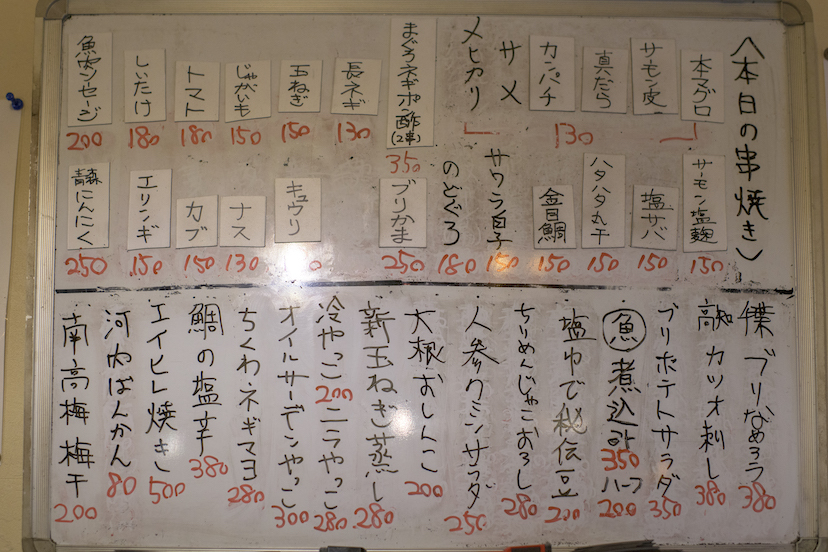 〈本日の串焼き〉
本マグロ
サーモン皮
真だら
カンパチ
130
サメ
メヒカリ
まぐろネギポン酢(2串)
350
長ネギ
130
玉ねぎ
150
じゃがいも
150
トマト
180
しいたけ
180
魚肉ソーセージ
200
サーモン塩麹
150
塩サバ
150
ハタハタ丸干
150
金目鯛
150
サワラ白子
150
のどぐろ
180
ブリかま
250
キュウリ
ナス
130
カブ
150
エリンギ
150
青森にんにく
250
僕ブリなめろう
380
高知カツオ刺し
380
ブリポテトサラダ
350
魚煮込み
350
ハーフ
200
塩ゆで秘伝豆
200
ちりめんじゃこおろし
280
人参クミンサラダ
250
大根おしんこ
200
新玉ねぎ蒸し
280
冷やっこ
200
ニラやっこ
280
オイルサーデンやっこ
300
ちくわネギマヨ
280
鯛の塩辛
380
エイヒレ焼き
500
河内ばんかん
80
南高梅梅干
200